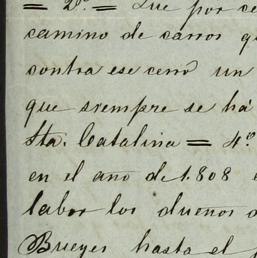 = 2.º = Que por ce
camino de carros q
contra ese cerro un
que siempre se há
Sta. Catalina = 4.º
en el ano de 1.808 e
labor los duenos d
Brueyes hasta el p